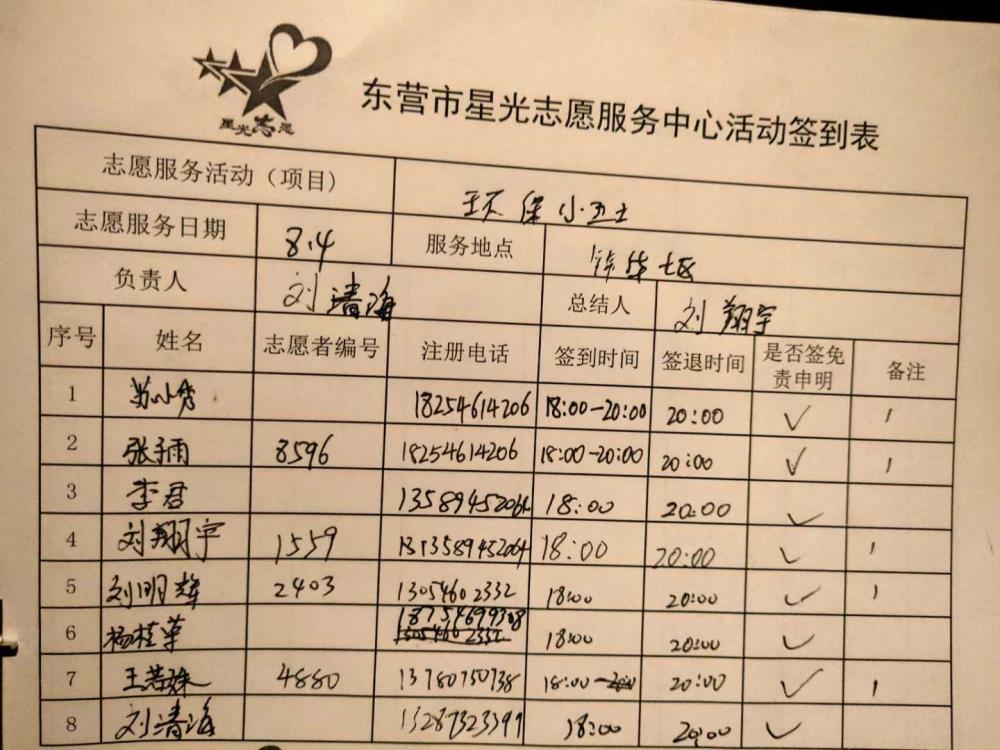 星光志愿
东营市星光志愿服务中心活动签到表
志愿服务活动（项目） 环保小卫士
志愿服务日期 8.4 服务地点 锦华七区
负责人 刘清海 总结人 刘翔宇
序号 姓名 志愿者编号 注册电话 签到时间 签退时间 是否签免责申明 备注
1 苏小秀 18254614206 18:00-20:00 20:00 ✓
2 张子雨 8596 18254614206 18:00-20:00 20:00 ✓
3 李君 13589452064 18:00 20:00 ✓
4 刘翔宇 1559 13589452064 18:00 20:00 ✓
5 刘明 2403 13054602332 18:00 20:00 ✓
6 杨桂 18754699308 18:00 20:00 ✓
7 王若姝 4880 13780750738 18:00 20:00 ✓
8 刘清海 13287323399 18:00 20:00 ✓